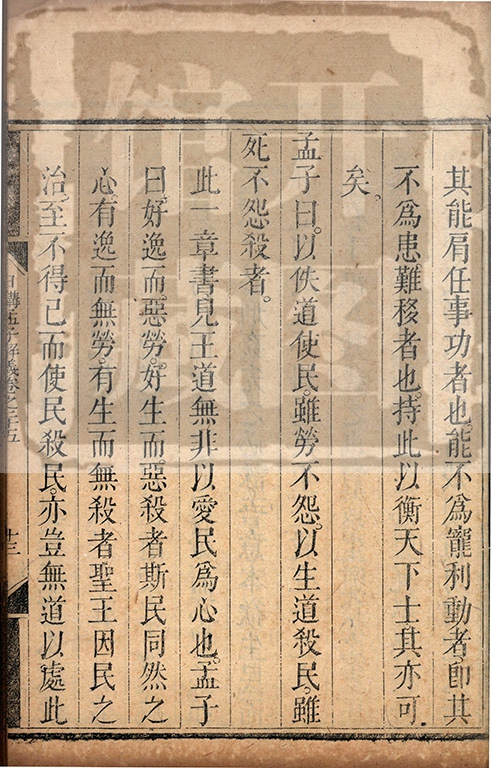 其能肩任事功者也。能不爲寵利動者。卽其
不爲患難移者也。持此以衡天下士。其亦可
矣。
孟子曰。以佚道使民。雖勞不怨。以生道殺民。雖
死不怨殺者。
此一章書見王道無非以愛民爲心也。孟子
曰。好逸而惡勞。好生而惡殺者斯民同然之
心。有逸而無勞。有生而無殺者聖王因民之
治。至不得已而使民殺民。亦豈無道以處此
日講孟子解義卷之二十五
十三